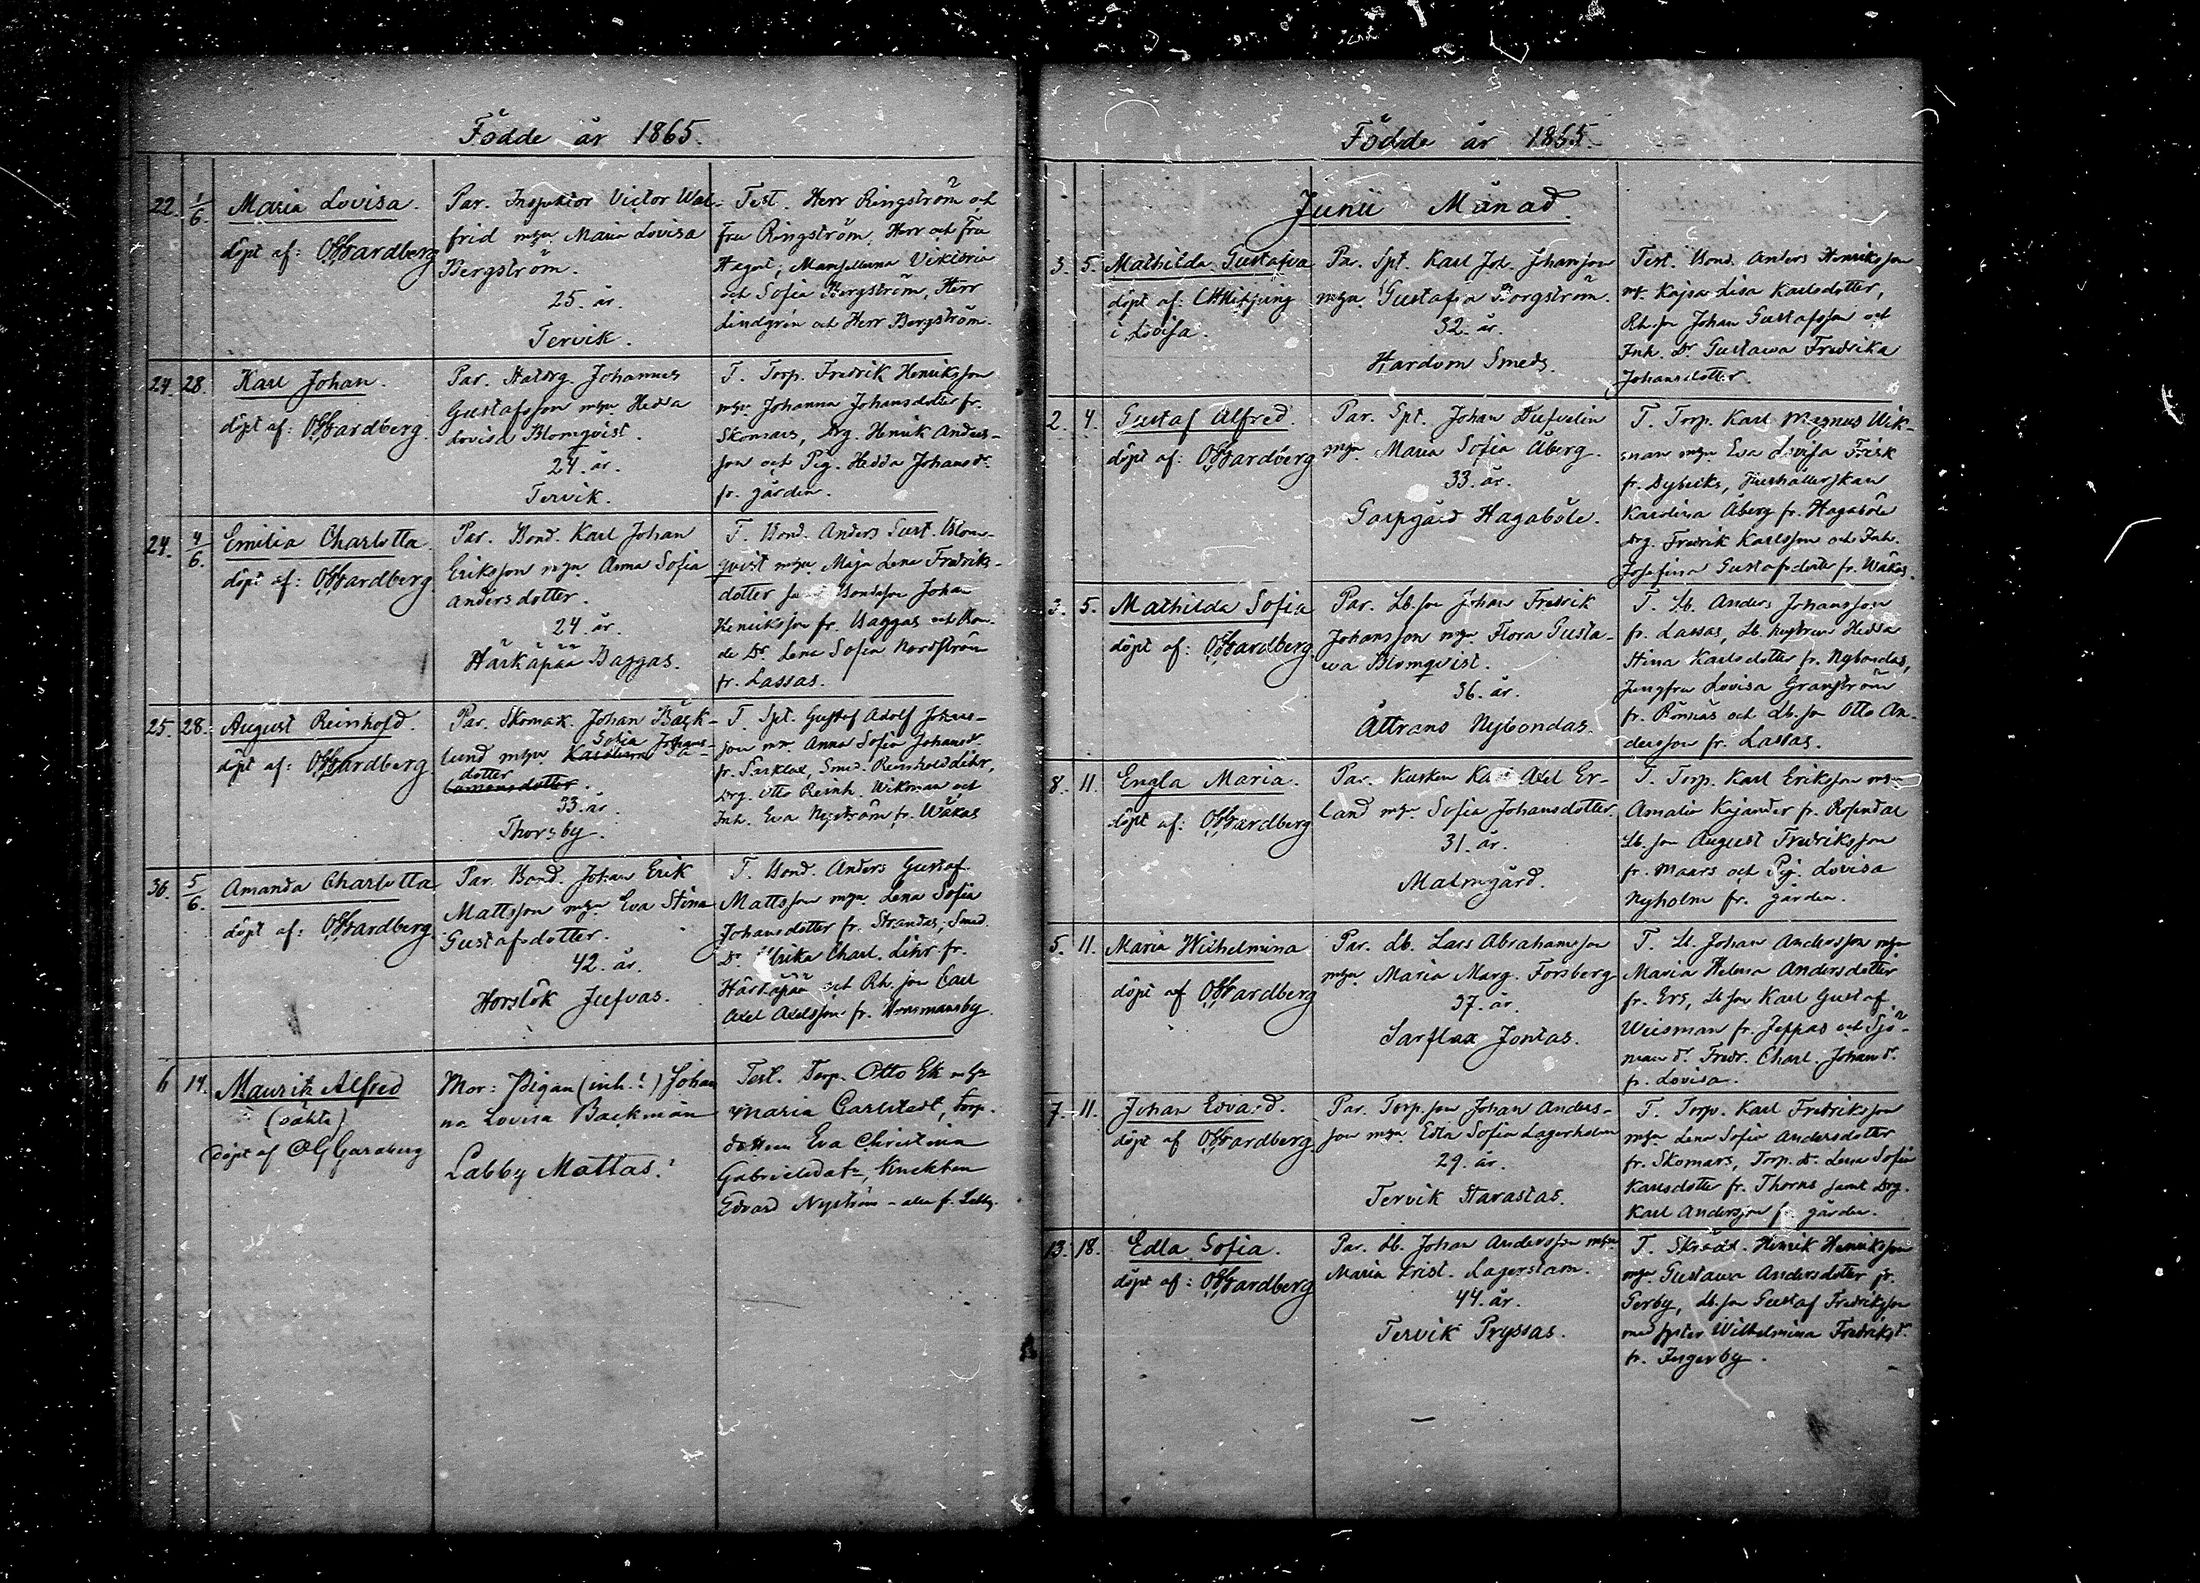 Födde år 1865.
22. 1/6. Maria Lovisa.
döpt af: OGGardberg
Par. Inspektor Victor Wal-
frid m hu Maria Lovisa
Bergström.
25. år.
Tervik.
Test. Herr Ringström och
Fru Ringström, Herr och Fru
Hagert, Mamsellerna Viktoria
och Sofia Bergström, Herr
Lindgrén och Herr Bergström.
24. 28. Karl Johan.
döpt af: OGGardberg.
Par. Johannes
Gustafsson m hu Hedda
Lovisa Blomqvist.
24. år.
Tervik.
T. Torp. Fredrik Henriksson
m hu Johanna Johansdotter fr.
Skomars, Drg. Henrik Anders-
son och Pig. Hedda Johansdr.
fr. gården.
24. 4/6. Emilia Charlotta.
döpt af: OGGardberg
Par. Bond. Karl Johan
Eriksson m hu Anna Sofia
Andersdotter.
24. år.
Härkäpää Baggas.
T. Bond. Anders Gust. Blom-
qvist m hu Maja Lena Fredriks-
dotter samt Bondeson Johan
Henriksson fr. Baggas och Bon-
de Dr. Lena Sofia Nordström
fr. Lassas.
25. 28. August Reinhold.
döpt af: OGGardberg
Par. Skomak. Johan Bäck-
lund m hu Karolina Sofia Johans-
dotter
33. år.
Thorsby.
T. Spt. Gustaf Adolf Johans-
son m hu Anna Sofia Johansdr.
fr. Sarflax, Smed. Reinhold Lihr,
Drg. Otto Reinh. Wikman och
Inh. Eva Nyström fr. Wåkas
36. 5/6. Amanda Charlotta
döpt af: OGGardberg.
Par. Bond. Johan Erik
Mattsson m hu Eva Stina
Gustafsdotter.
42. år.
Horslök Jufvas.
T. Bond. Anders Gustaf
Mattsson m hu Lena Sofia
Johansdotter fr. Strandas, Smed.
Dr. Ulrika Charl. Lihr fr.
Härkäpää och Rh. son Carl
Axel Axelsson fr. Hormansby.
6 14. Mauritz Alfred
(oäkta)
Döpt af OGGardberg
Mor: Pigan (inh.!) Johan
na Lovisa Backman
Labby Mattas!
Test. Torp. Otto Ek m hu
Maria Carlstedt, Torp.
dottern Eva Christina
Gabrielsdotr, Knekten
Edvard Nyström - alla f. Labby.
Födde år 1865.
Junii Månad.
3. 5. Mathilda Gustafva
döpt af:
i Lovisa.
Par. Spt. Karl Joh. Johansson
m hu Gustafva Borgström.
32. år.
Hardom Smeds.
Test. Bond. Anders Henriksson
m. Kajsa Lisa Karlsdotter,
Rh. son Johan Gustafsson och
Inh. Dr. Gustawa Fredrika
Johansdotter.
2. 4. Gustaf Alfred.
döpt af: OGGardberg
Par. Spt. Johan Dufvelin
m hu Maria Sofia Åberg.
33. år.
Garpgård Hagaböle.
T. Torp. Karl Magnus Wik-
man m hu Eva Lovisa Frisk
fr. Dybecks, Hushållerskan
Karolina Åberg fr. Hagaböle
Drg. Fredrik Karlsson och Inh.
Josefina Gustafsdotter fr. Wåkas.
3. 5. Mathilda Sofia
döpt af: OGGardberg
Par. Lb. son Johan Fredrik
Johansson m hu Flora Gusta-
wa Blomqvist.
36. år.
Åttrans Nybondas.
T. Lb. Anders Johansson
fr. Lassas, Lb. hustrun Hedda
Stina Karlsdotter fr. Nybondas,
Jungfru Lovisa Granström
fr. Rönnäs och Lb. son Otto An-
dersson fr. Lassas.
8. 11. Engla Maria.
döpt af: OGGardberg
Par. Kusken Karl Axel Er-
land m hu Sofia Johansdotter.
31. år.
Malmgård.
T. Torp. Karl Eriksson m hu
Amalia Kajander fr. Rosendal
Lb. son August Fredriksson
fr. Maars och Pig. Lovisa
Nyholm fr. gården.
5. 11. Maria Wilhelmina
döpt af OGGardberg
Par. Lb. Lars Abrahamsson
m hu Maria Marg. Forsberg
37. år.
Sarflax Jontas.
T. Lb. Johan Andersson m hu
Maria Helena Andersdotter
fr. Ers, Lb son Karl Gustaf
Weisman fr. Jeppas och Sjö-
man dr. Fredr. Charl. Johansdr.
fr. Lovisa.
7. 11. Johan Edvard.
döpt af OGGardberg
Par. Torp. son Johan Anders-
son m hu Edla Sofia Lagerholm
29. år.
Tervik Starastas.
T. Torp. Karl Fredriksson
m hu Lena Sofia Andersdotter
fr. Skomars, Torp. dr. Lena Sofia
Karlsdotter fr. Thorns samt Drg.
Karl Andersson fr. gården.
13. 18. Edla Sofia.
döpt af: OGGardberg
Par. Lb. Johan Andersson m hu
Maria Krist. Lagerstam.
44. år.
Tervik Pryssas.
T. Skrädd. Henrik Henriksson
m hu Gustawa Andersdotter fr.
Gerby, Lb. son Gustaf Fredriksson
med syster Wilhelmina Fredriksdr.
fr. Ingerby.